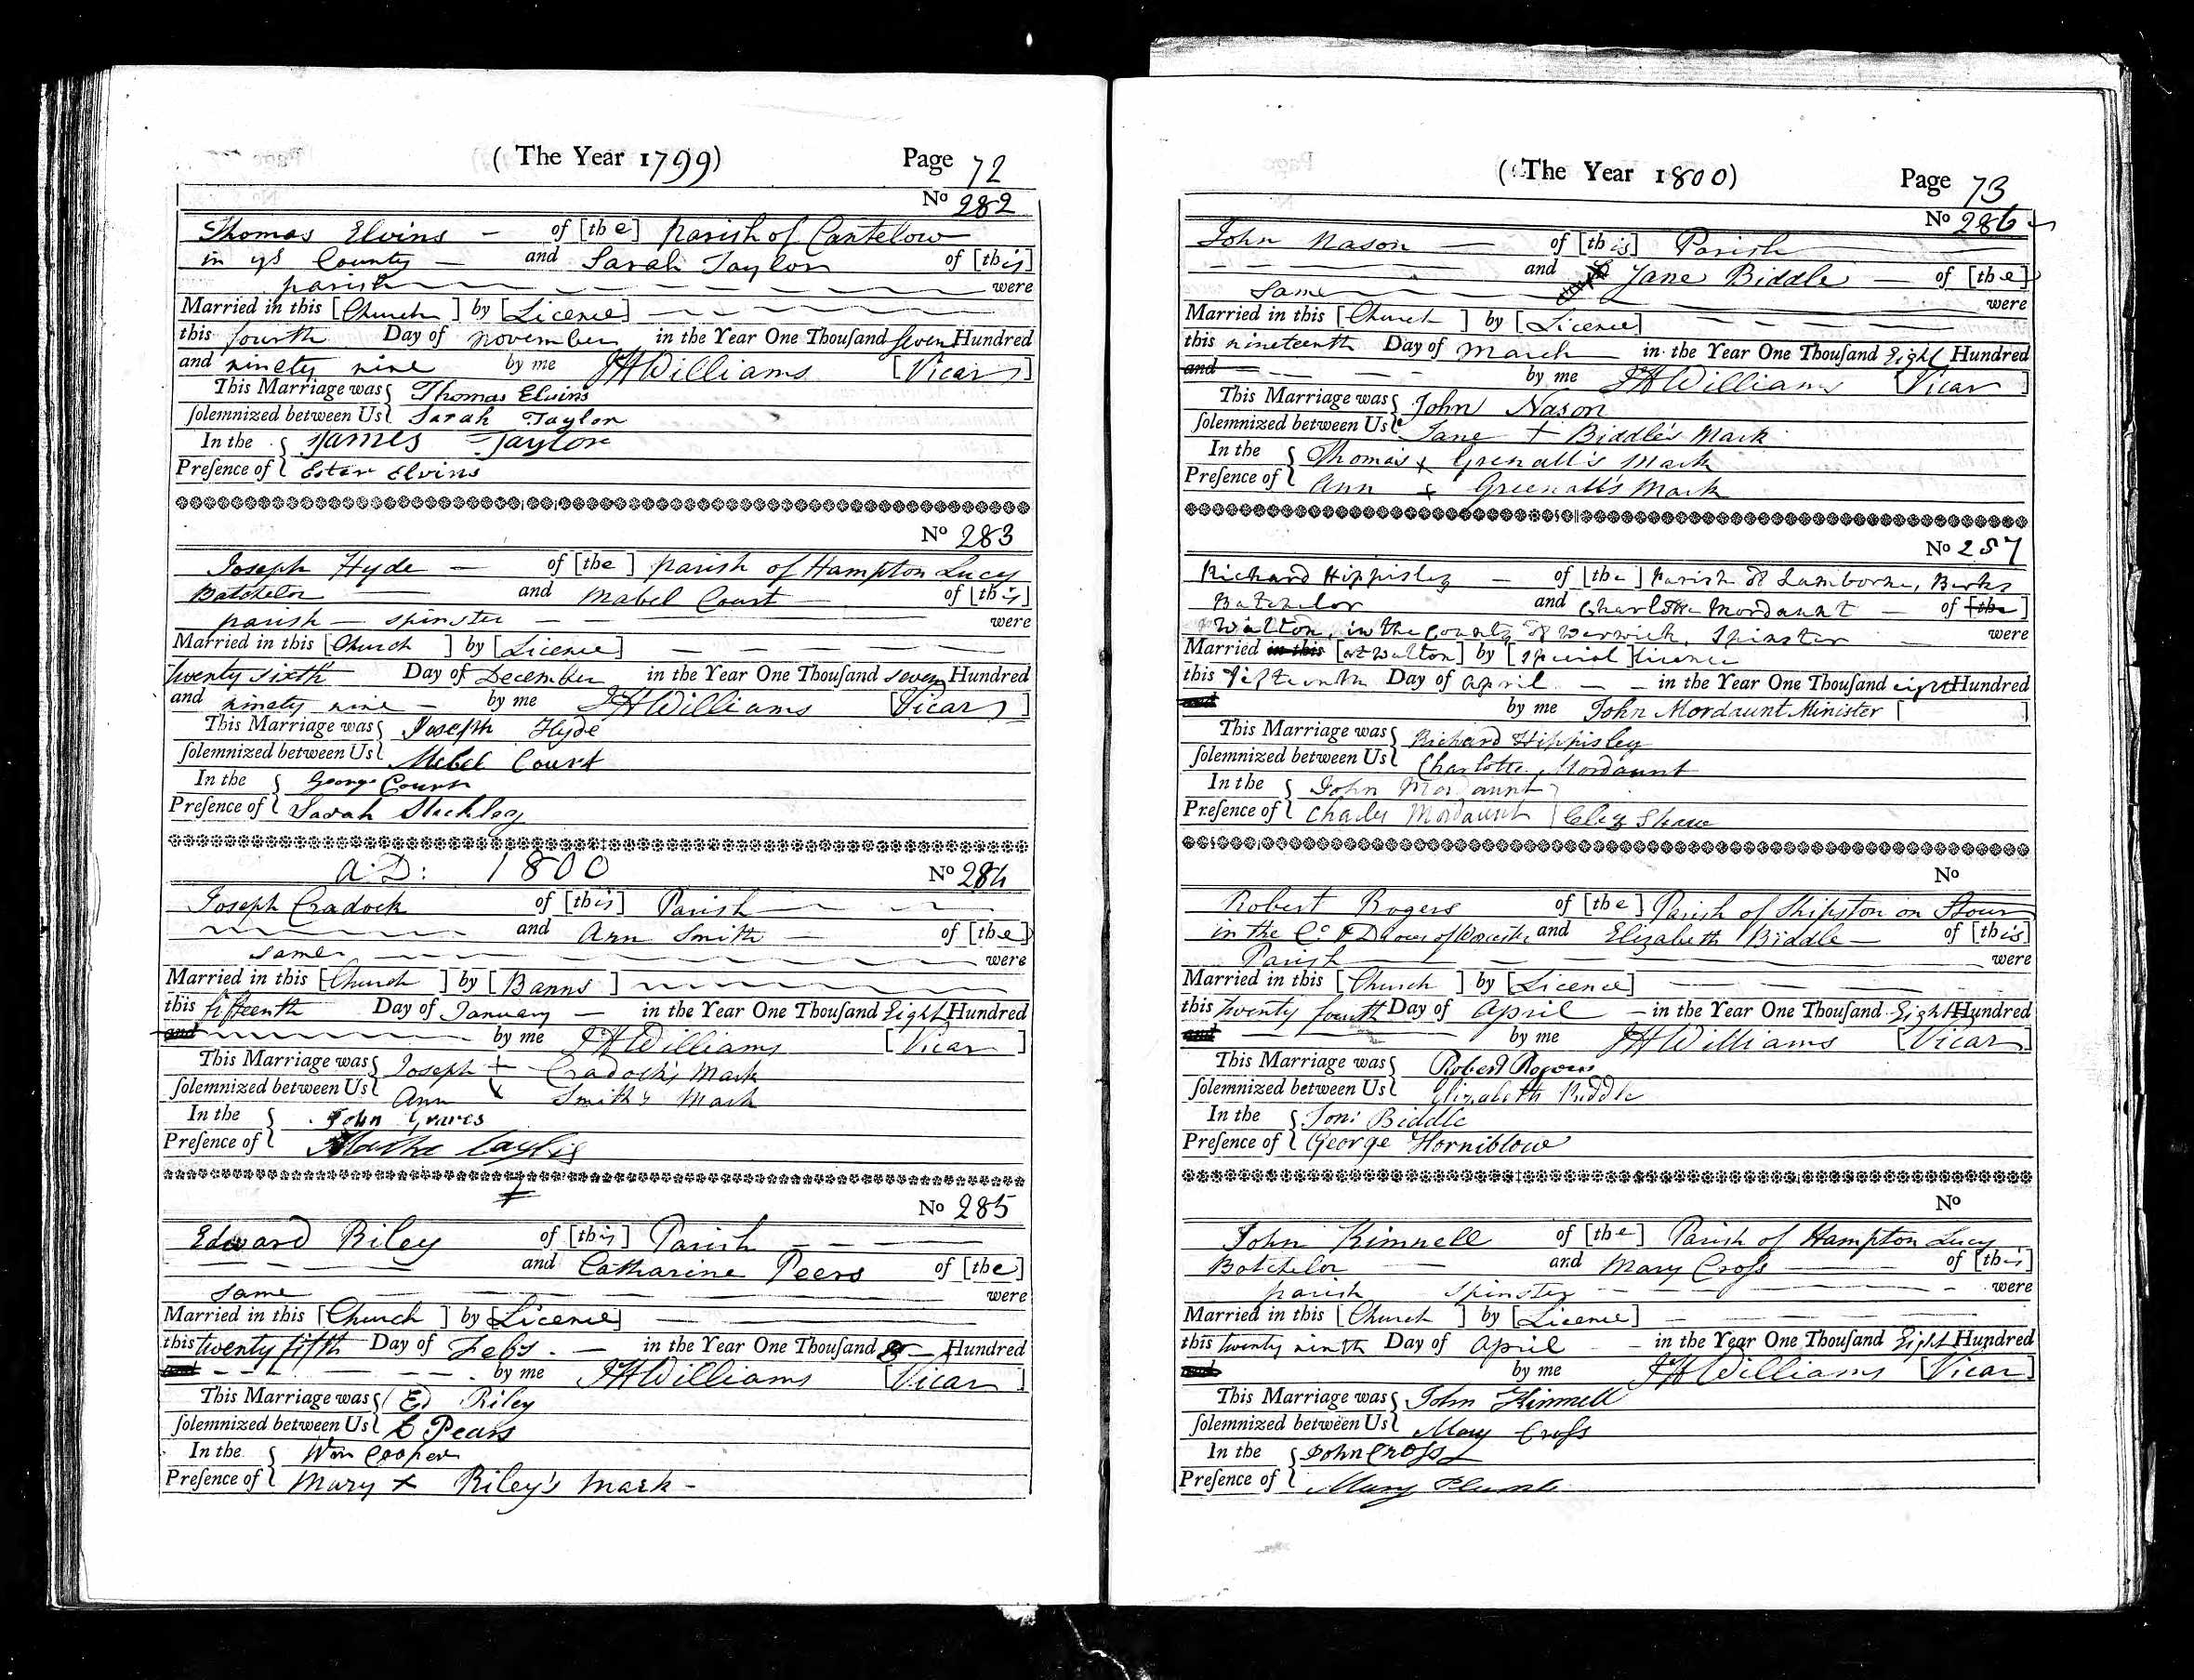 ( The Year 1799) Page 72
No 282
Thomas Elvins — of [the] parish of Cantelow
in ys County — and Sarah Taylor of [this]
parish were
Married in this [Church] by [Licence]
this fourth Day of november in the Year One Thouſand Seven Hundred
and ninety nine by me JHWilliams [Vicar]
This Marriage was Thomas Elvins
ſolemnized between Us Sarah Taylor
In the James Taylor
Preſence of Ester Elvins
No 283
Joseph Hyde — of [the] parish of Hampton Lucy
Batchelor and Mabel Court — of [this]
parish — spinster — were
Married in this [Church] by [Licence]
twenty sixth Day of December in the Year One Thouſand seven Hundred
and ninety nine — by me JHWilliams [Vicar]
This Marriage was Joseph Hyde
ſolemnized between Us Mebel Court
In the George Court
Preſence of Sarah
A:D: 1800 No 284
Joseph Cradock of [this] Parish
and Ann Smith — of [the]
same were
Married in this [Church] by [Banns]
this fifteenth Day of January — in the Year One Thouſand Eight Hundred
and by me JHWilliams [Vicar]
This Marriage was Joseph + Cradock's Mark
ſolemnized between Us Ann x Smith's Mark
In the John Graves
Preſence of
No 285
Edward Riley of [this] Parish
and Catharine Peers of [the]
same were
Married in this [Church] by [Licence]
this twenty fifth Day of Feby. — in the Year One Thouſand 8 — Hundred
and by me JHWilliams [Vicar]
This Marriage was Ed Riley
ſolemnized between Us C Pears
In the Wm Cooper
Preſence of Mary x Riley's Mark -
( The Year 1800) Page 73
No 286
John Nason — of [this] Parish
and Jane Biddle — of [the]
same were
Married in this [Church] by [Licence]
this nineteenth Day of March in the Year One Thouſand Eight Hundred
and by me JHWilliams [Vicar]
This Marriage was John Nason
ſolemnized between Us Jane + Biddle's Mark
In the Thomas x Grenall's Mark
Preſence of Ann x Greenall's Mark
No 287
Richard Hippisley — of [the] Parish of Lamborne, Berks
Batchelor and Charlotte Mordaunt — of [the]
Walton, in the County of Warwick, Spinster were
Married in this [at Walton] by [special] licence
this fifteenth Day of April — in the Year One Thouſand eight Hundred
and by me John Mordaunt Minister [ ]
This Marriage was Richard Hippisley
ſolemnized between Us Charlotte Mordaunt
In the John Mordaunt
Preſence of Charles Mordaunt Shaw
No
Robert Rogers of [the] Parish of Shipston on Stour
in the Co. & of Worcester and Elizabeth Biddle — of [this]
Parish were
Married in this [Church] by [Licence]
this twenty fourth Day of April — in the Year One Thouſand Eight Hundred
and by me JHWilliams [Vicar]
This Marriage was Robert Rogers
ſolemnized between Us Elizabeth Biddle
In the Biddle
Preſence of George Horniblow
No
John Kimnell of [the] Parish of Hampton Lucy
Batchelor and Mary Croſs — of [this]
parish spinster were
Married in this [Church] by [Licence]
this twenty ninth Day of April — in the Year One Thouſand Eight Hundred
and by me JHWilliams [Vicar]
This Marriage was John Kimnell
ſolemnized between Us Mary Croſs
In the John Croſs
Preſence of Mary